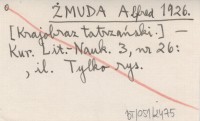 ŻMUDA Alfred 1926.
[Krajobraz tatrzański.] —
Kur. Lit.-Nauk. 3, nr 26:
, il. Tylko rys.
BJ/051/2475